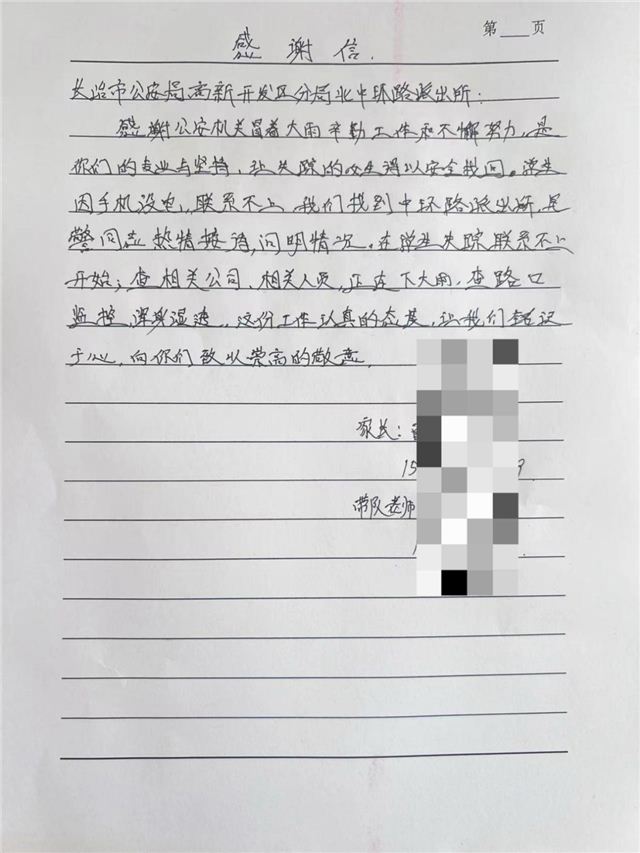 第___页
感谢信.
长治市公安局高新开发区分局北中环路派出所:
感谢公安机关冒着大雨辛勤工作和不懈努力,是
你们的专业与坚持,让失踪的女生得以安全找回。学生
因手机没电,联系不上,我们找到中环路派出所,民
警同志热情接待,问明情况。在学生失踪联系不上
开始;查相关公司、相关人员,正在下大雨,查路口
监控,浑身湿透,这份工作认真的态度,让我们铭记
于心,向你们致以崇高的敬意。
家长:
15
带队老师